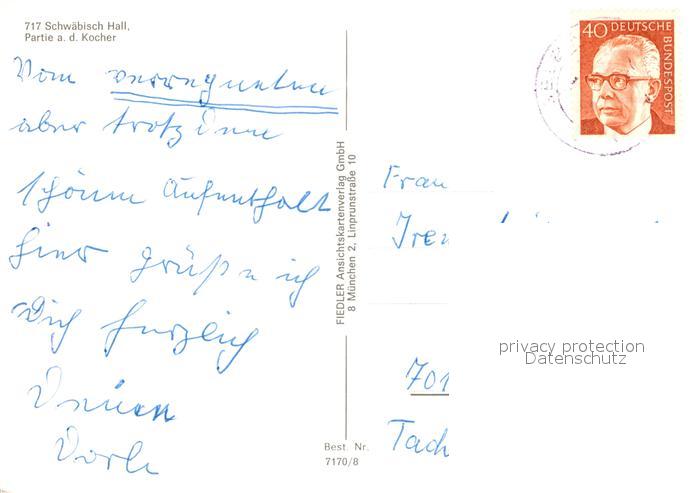 717 Schwäbisch Hall,
Partie a. d. Kocher
Vom verregneten
aber trotzdem
schönen Aufenthalt
hier grüße ich
Dich herzlich
Deine
Dorle
FIEDLER Ansichtskartenverlag GmbH
8 München 2, Linprunstraße 10
Best. Nr.
7170/8
40 DEUTSCHE
BUNDESPOST
Frau
Iren
701
Tach
privacy protection
Datenschutz